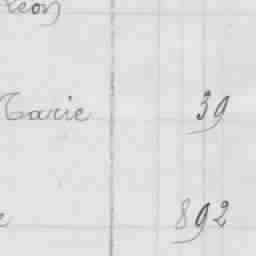 léon
Marie 39
e 892